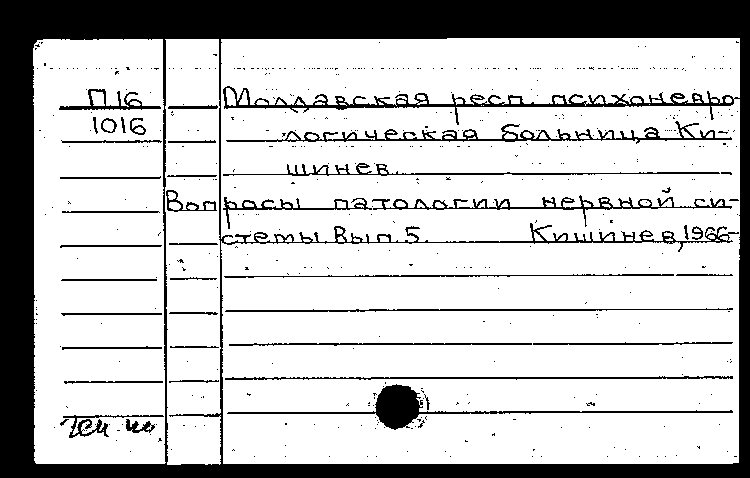 П16 Молдавская респ. психоневро-
1016 логическая больница Ки-
шинев.
Вопросы патологии нервной си-
стемы. Вып. 5. Кишинев, 1966-